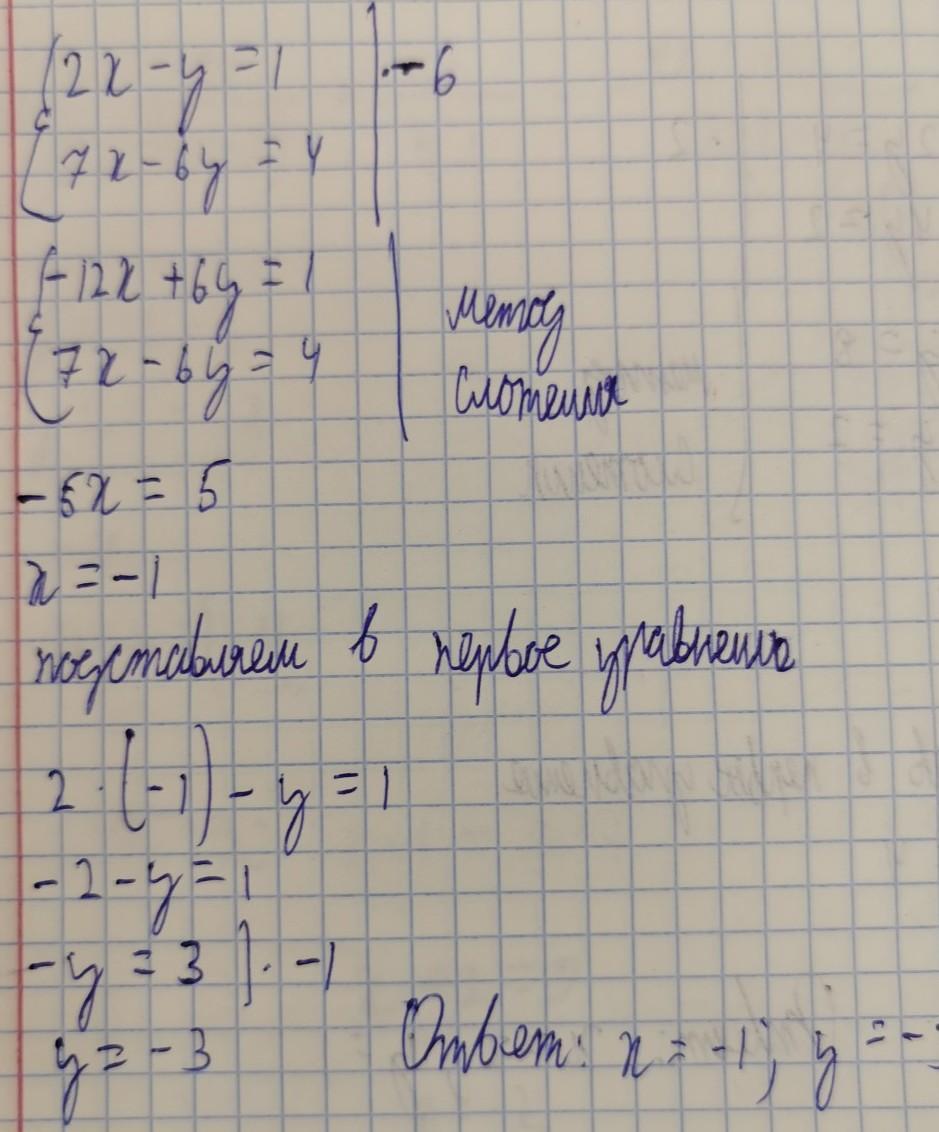 2x - y = 1 | · - 6
7x - 6y = 4
-12x + 6y = 1
7x - 6y = 4
метод
сложения
- 5x = 5
x = - 1
подставляем в первое уравнение
2 · (-1) - y = 1
- 2 - y = 1
- y = 3 | · -1
y = - 3
Ответ: x = -1; y = -